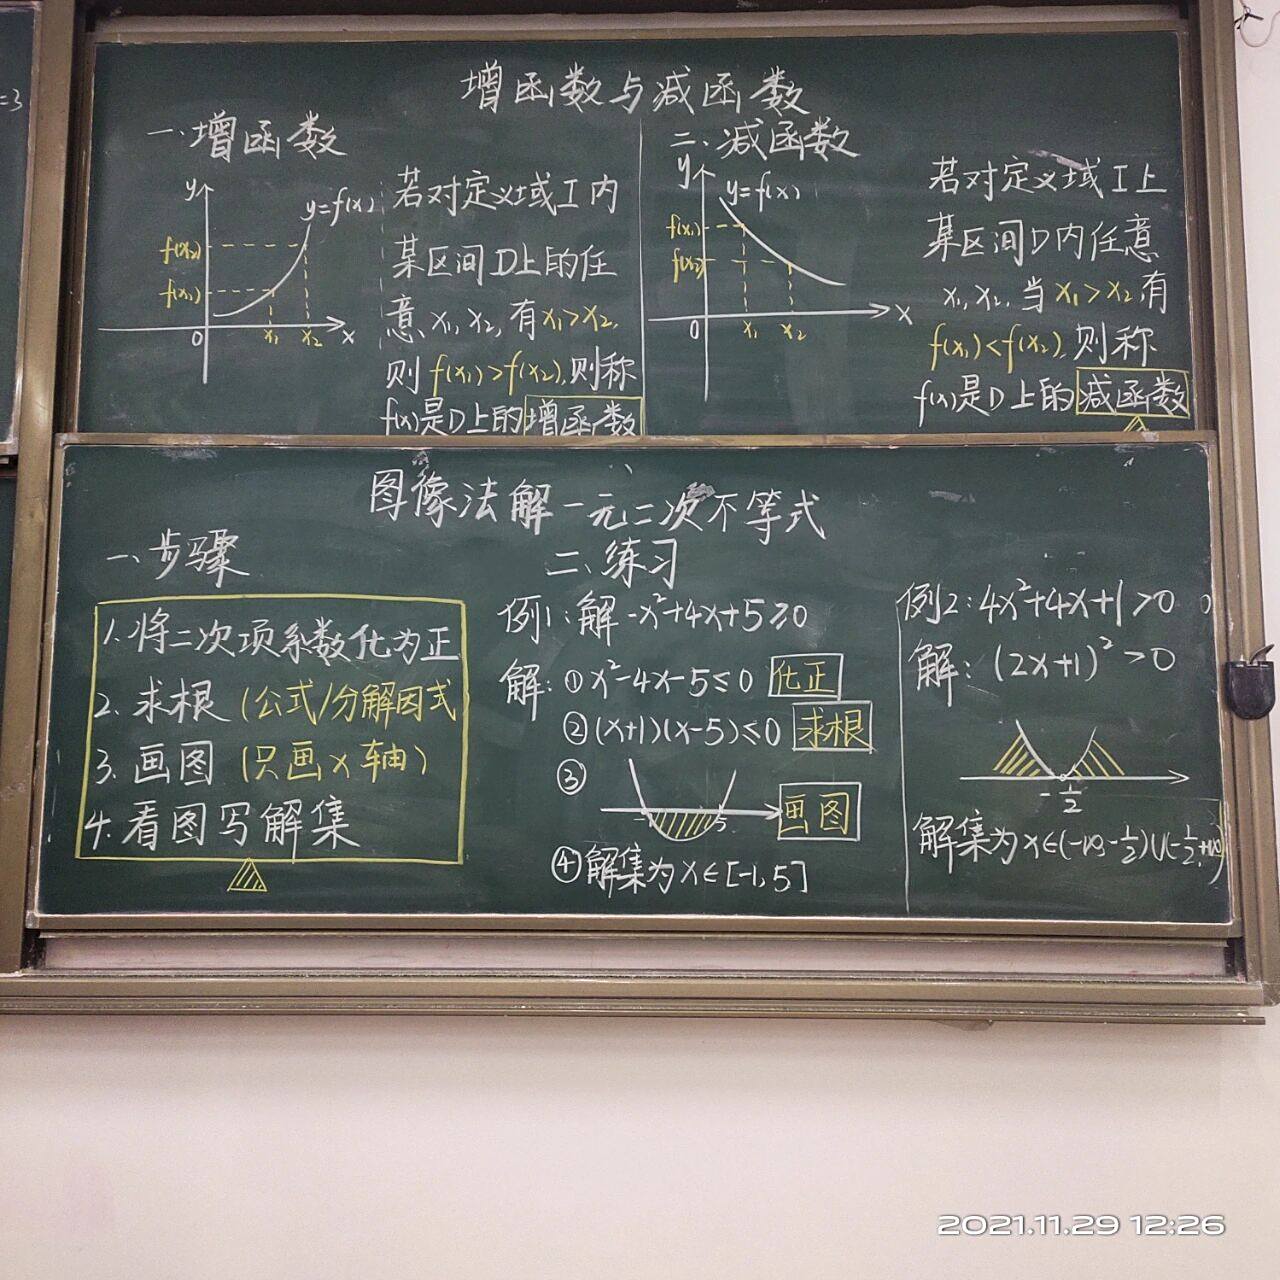 =3
增函数与减函数
一、增函数
y
y=f(x)
f(x₂)
f(x₁)
0
x₁
x₂
x
若对定义域I内
某区间D上的任
意x₁,x₂,有x₁>x₂,
则f(x₁)>f(x₂),则称
f(x)是D上的增函数
二、减函数
y
y=f(x)
f(x₁)
f(x₂)
0
x₁
x₂
x
若对定义域I上
某区间D内任意
x₁,x₂,当x₁>x₂,有
f(x₁)<f(x₂),则称
f(x)是D上的减函数
图像法解一元二次不等式
一、步骤
1.将二次项系数化为正
2.求根(公式/分解因式
3.画图(只画x轴)
4.看图写解集
二、练习
例1:解-x²+4x+5≥0
解:①x²-4x-5≤0 化正
②(x+1)(x-5)≤0 求根
③
-1
5
画图
④解集为x∈[-1,5]
例2:4x²+4x+1>0
解:(2x+1)²>0
-1/2
解集为x∈(-∞-1/2)∪(-1/2,+∞)
2021.11.29 12:26